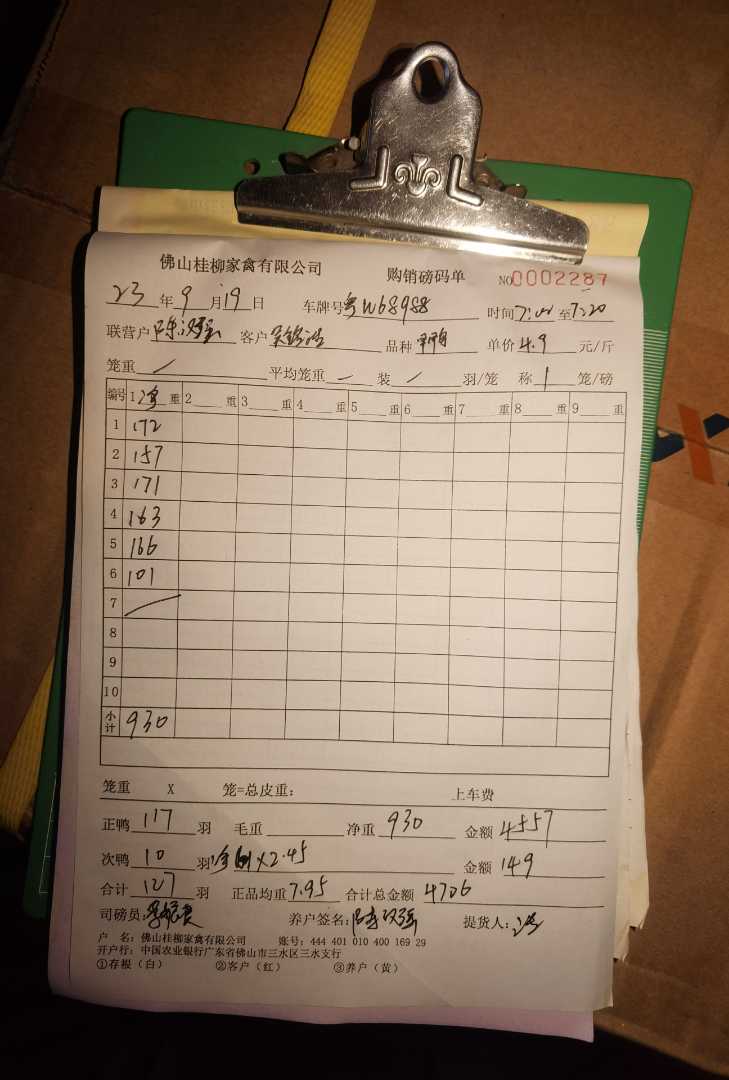 佛山桂柳家禽有限公司 购销磅码单 NO0002287
23年9月19日 车牌号粤W68988 时间7:00至7:20
联营户陈汉强 客户 品种 单价4.9元/斤
笼重/ 平均笼重— 装/羽/笼 称1笼/磅
编号 1 重 2 重 3 重 4 重 5 重 6 重 7 重 8 重 9 重
1 172
2 157
3 171
4 163
5 166
6 101
7 /
8
9
10
小计 930
笼重 X 笼=总皮重: 上车费
正鸭117羽 毛重 净重930 金额4557
次鸭10羽 X2.45 金额149
合计127羽 正品均重7.95 合计总金额4706
司磅员: 养户签名:陈汉强 提货人:
户 名:佛山桂柳家禽有限公司 账号:444 401 010 400 169 29
开户行:中国农业银行广东省佛山市三水区三水支行
①存根(白) ②客户(红) ③养户(黄)